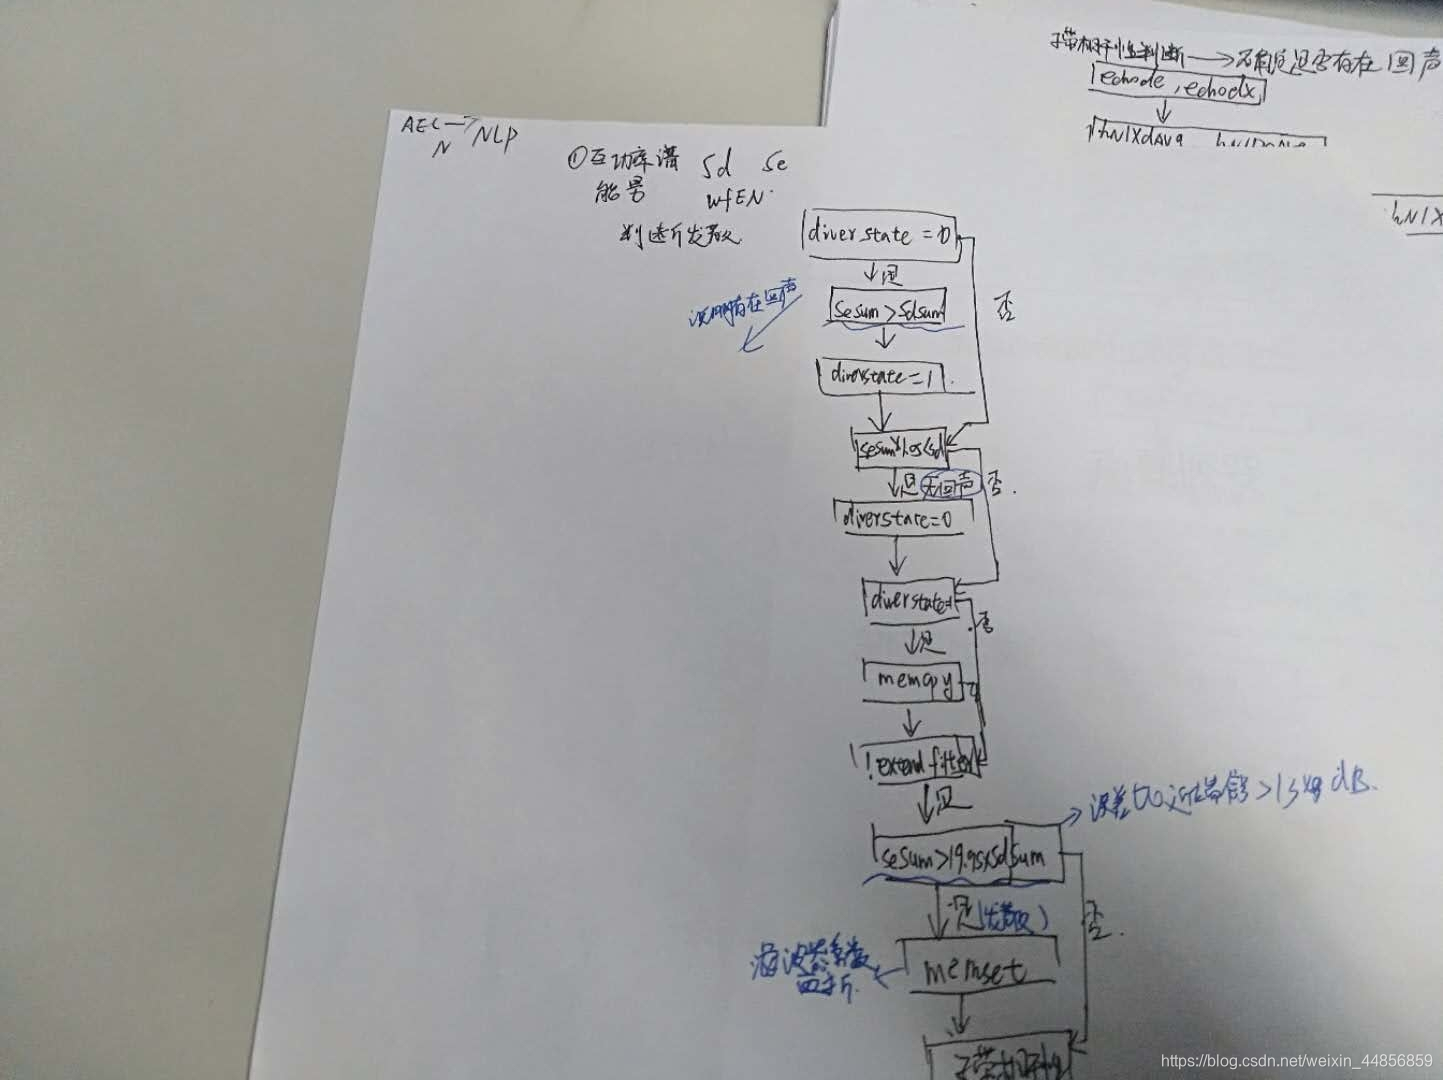 子带相干性判断 → 不能定是否存在回声
echode, echodx
hNlXdAvg
hNlX
AEC → NLP
N
①互功率谱 Sd Se
能号 wfEN
判断发散
diverstate = 0
是
否
sesum > sdsum
说明存在回声
diverstate = 1
sesum*1.05<sd
是 无回声 否.
diverstate=0
diverstate=1
否
是
memcpy
!extend filter
是
误差比近端信号>13 dB.
sesum>19.95xsdsum
是(发散)
否.
滤波器系数
memset
子带相干性
https://blog.csdn.net/weixin_44856859